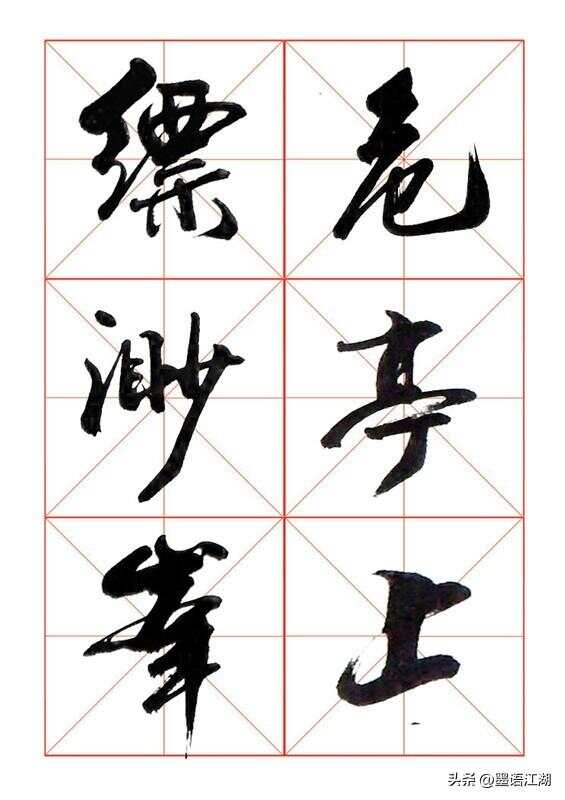 危亭上
缥渺峯
头条 @墨语江湖